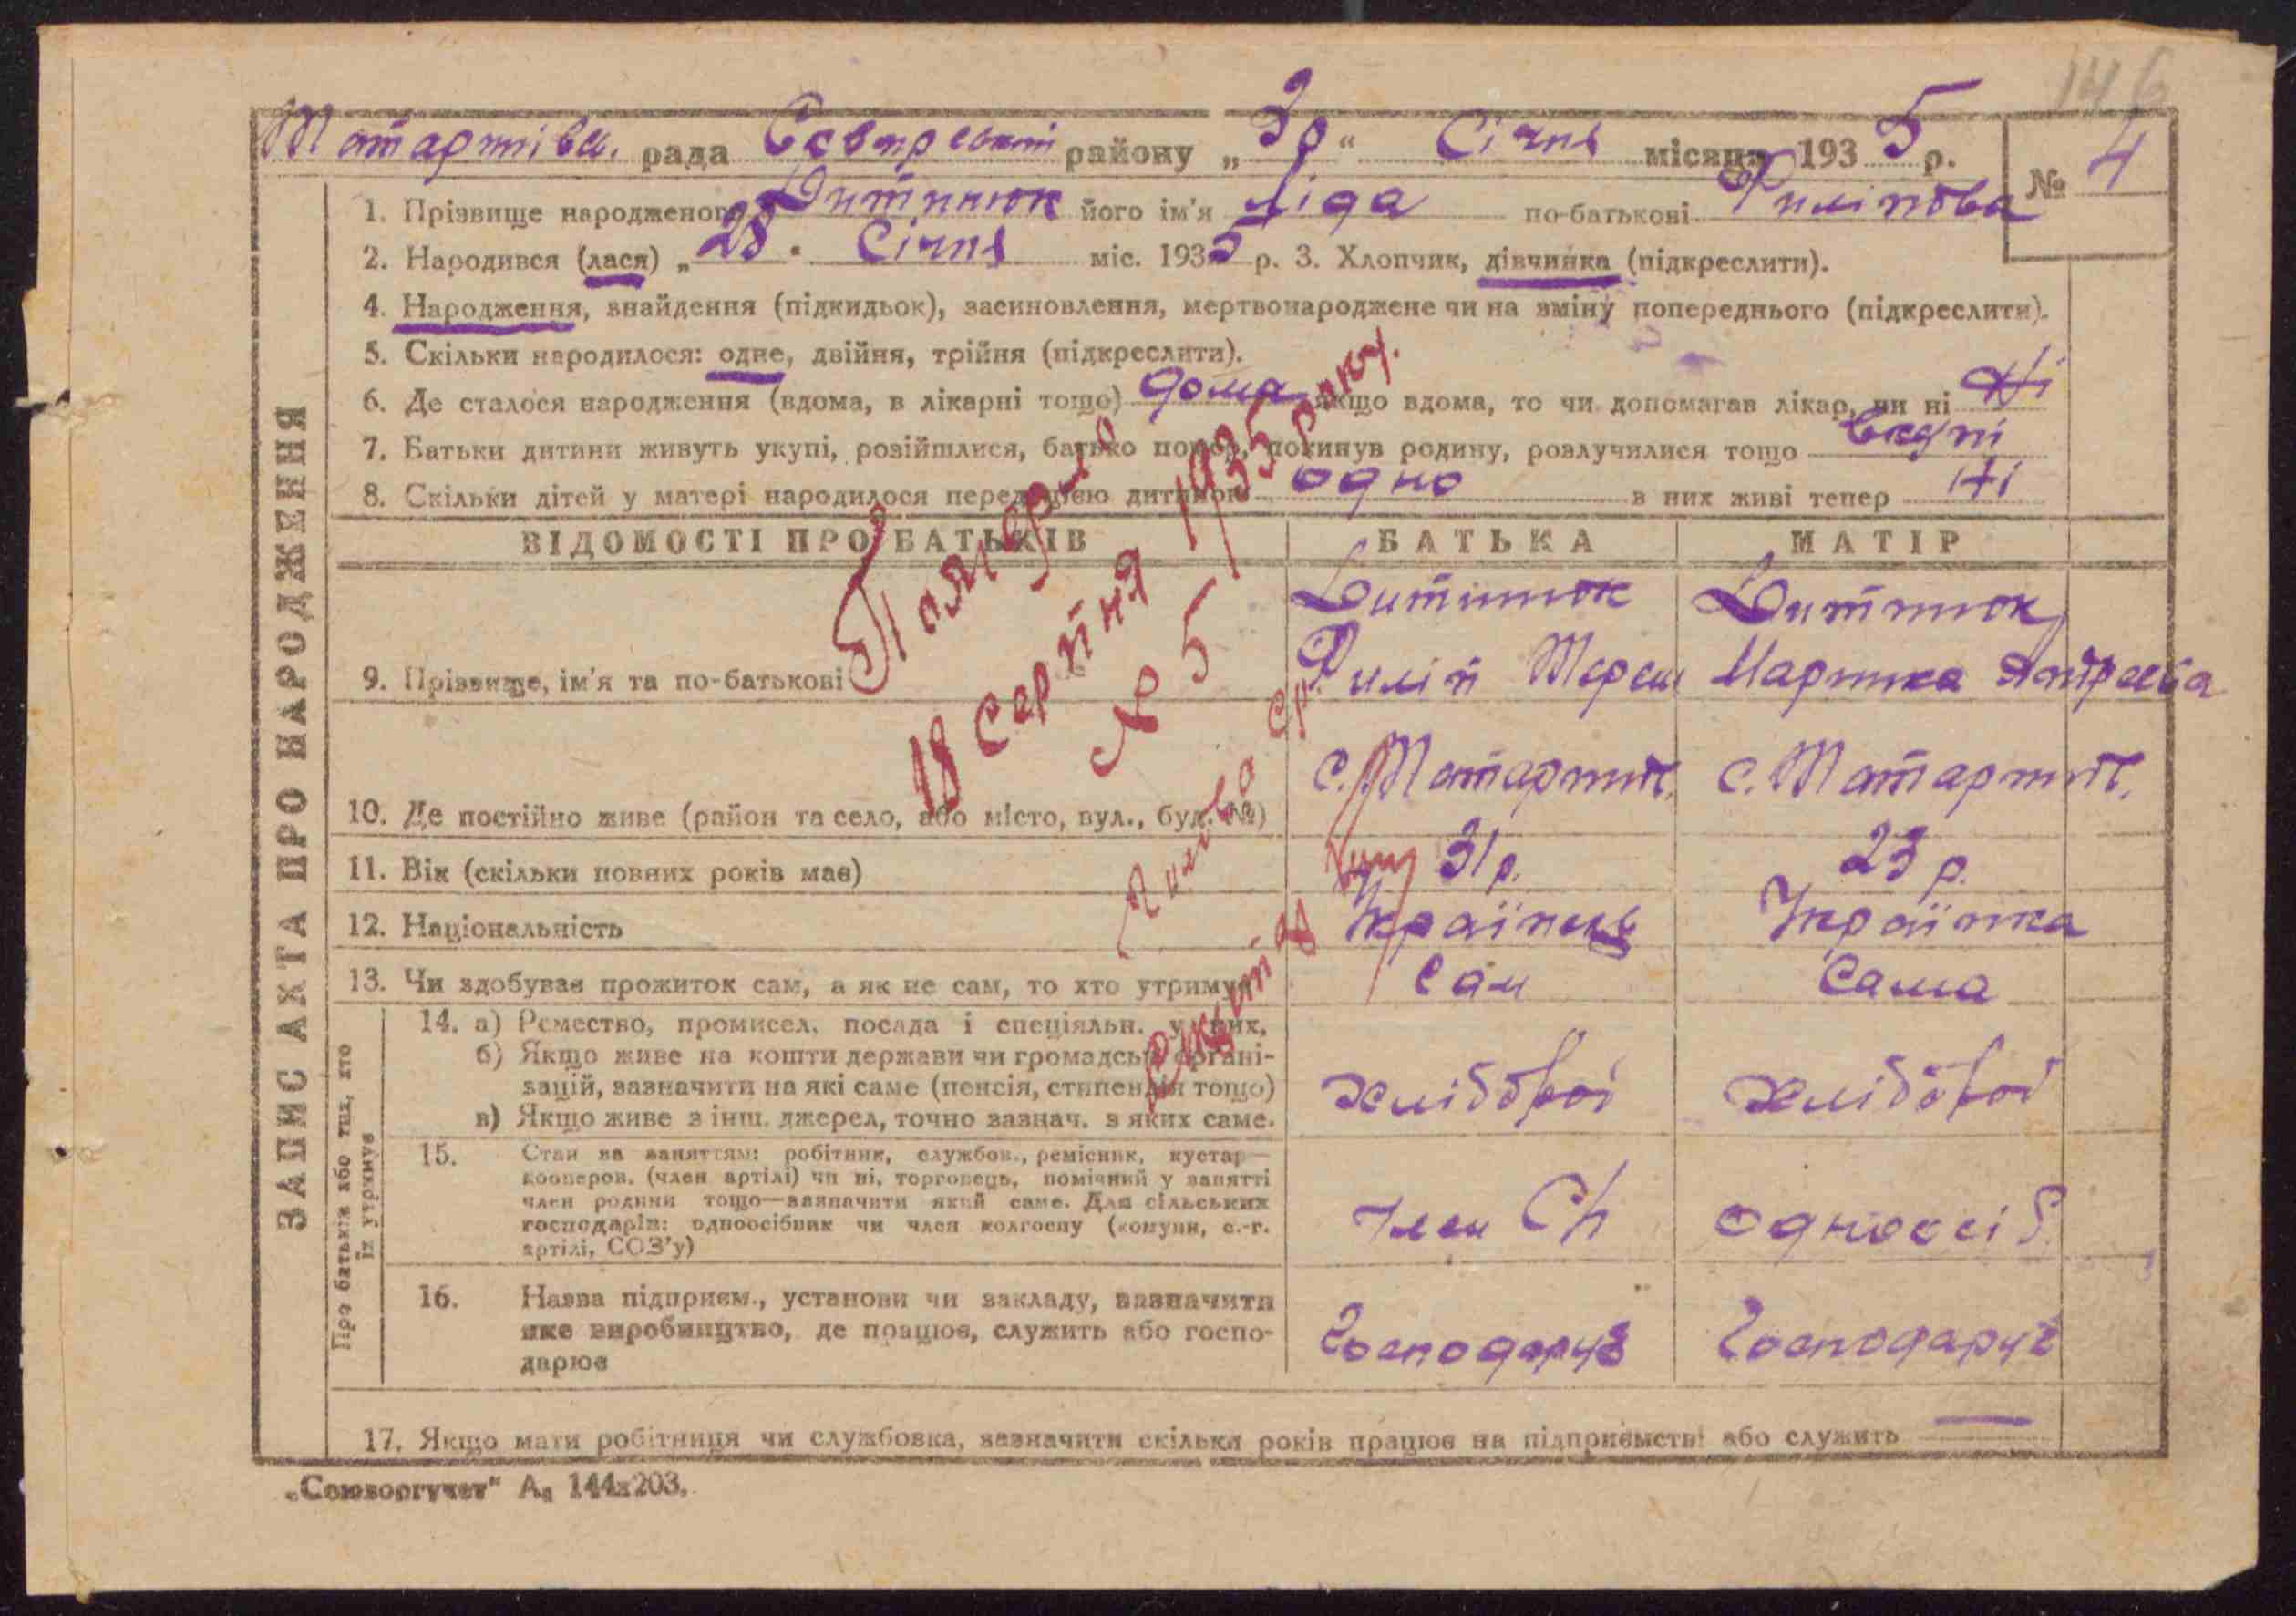 146
Татартівсь. рада району „30“ Січня місяця 1935 р.
№ 4
1. Прізвище народженого Дитинюк його ім'я Ліда по-батькові Филіпова
2. Народився (лася) „28“ Січня міс. 1935 р. 3. Хлопчик, дівчинка (підкреслити).
4. Народження, знайдення (підкидьок), засиновлення, мертвонароджене чи на зміну попереднього (підкреслити).
5. Скільки народилося: одне, двійня, трійня (підкреслити).
6. Де сталося народження (вдома, в лікарні тощо) дома якщо вдома, то чи допомагав лікар, чи ні Ні
7. Батьки дитини живуть укупі, розійшлися, батько помер, покинув родину, розлучилися тощо вкупі
8. Скільки дітей у матері народилося перед цією дитиною одно в них живі тепер Ні
ВІДОМОСТІ ПРО БАТЬКІВ БАТЬКА МАТІР
Дитинюк Дитинюк
9. Прізвище, ім'я та по-батькові Филіп Терен Маринка Андреєва
10. Де постійно живе (район та село, або місто, вул., буд. №) с. Татарин. с. Татарин.
11. Вік (скільки повних років має) 31 р. 23 р.
12. Національність Українець Українка
13. Чи здобуває прожиток сам, а як не сам, то хто утримує Сам Сама
14. а) Ремество, промисел, посада і спеціяльн. у них,
б) Якщо живе на кошти держави чи громадськ. організацій, зазначити на які саме (пенсія, стипендія тощо)
в) Якщо живе з інш. джерел, точно зазнач. з яких саме.
хлібороб хлібороб
15. Стан за заняттям: робітник, службов., ремісник, кустар—
кооперов. (член артілі) чи ні, торговець, помічний у занятті
член родини тощо—зазначити який саме. Для сільських
господарів: одноосібник чи член колгоспу (комуни, с.-г.
артілі, СОЗ'у)
член одноосіб.
16. Назва підприєм., установи чи закладу, зазначити
яке виробництво, де працює, служить або господарює
Господарує Господарує
17. Якщо мати робітниця чи службовка, зазначити скільки років працює на підприємстві або служить —
ЗАПИС АКТА ПРО НАРОДЖЕННЯ
Про батьків або тих, хто
їх утримує
18 серпня 1935 року.
№ 5
„Союзоргучет“ А₄ 144х203.